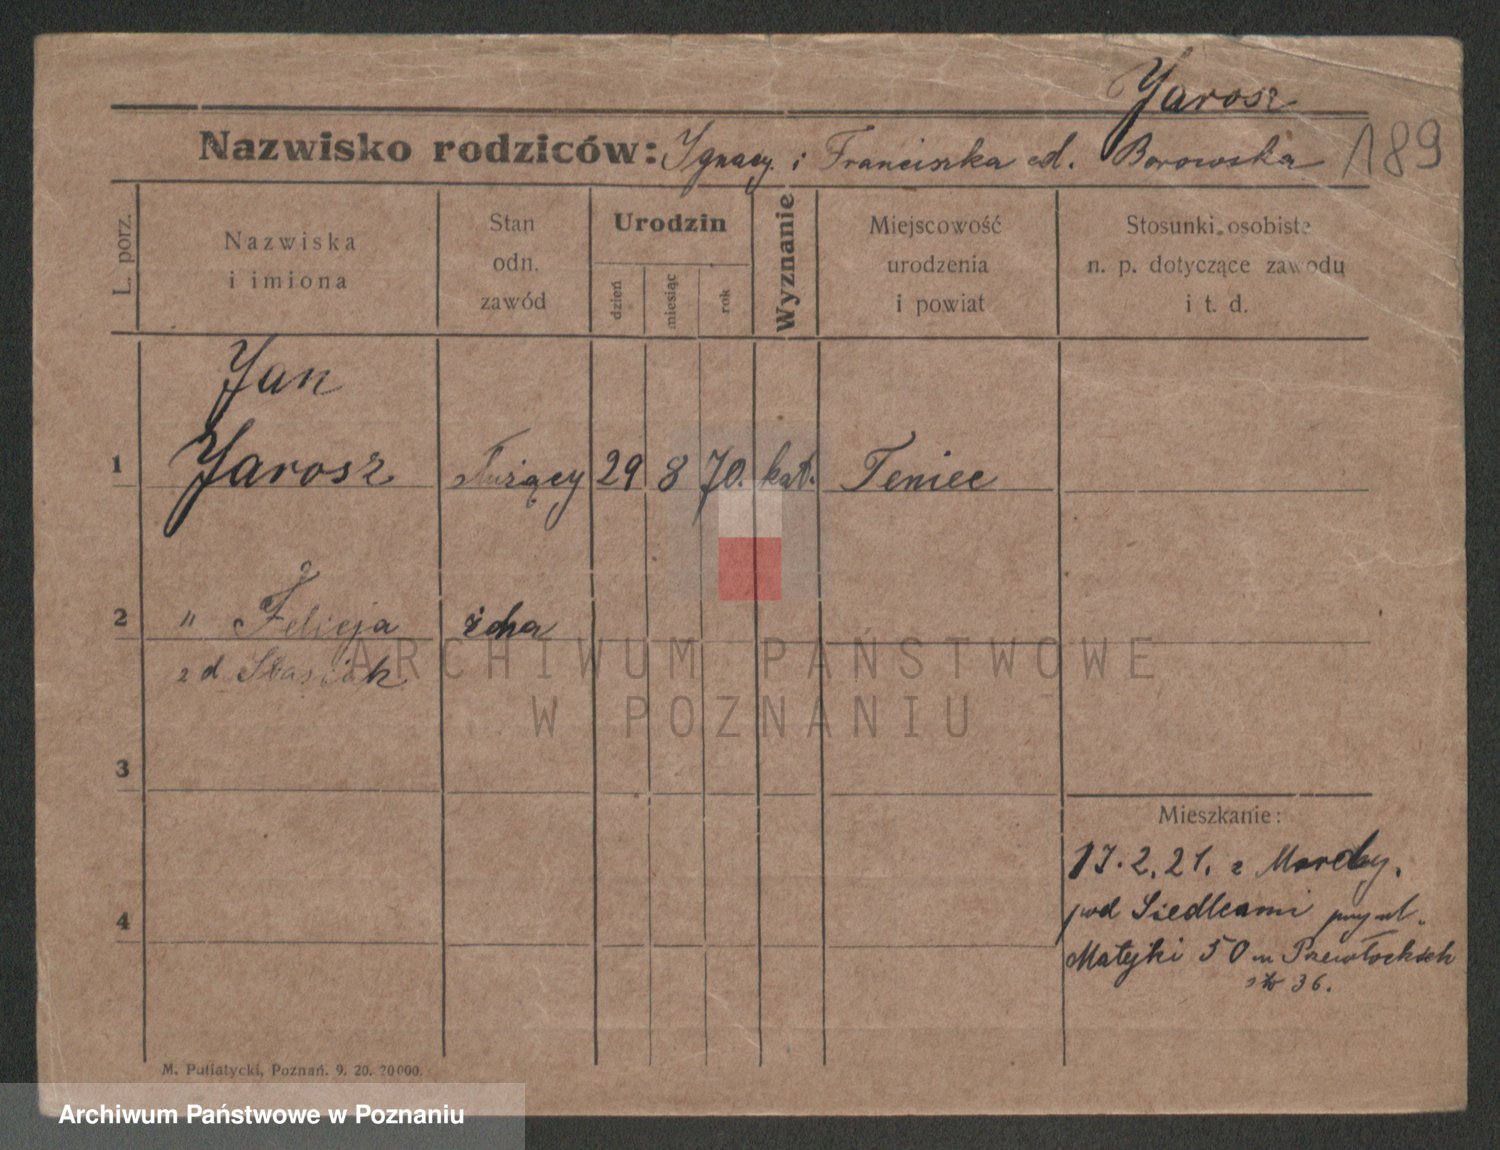 Jarosz
Nazwisko rodziców: Ignacy i Franciszka zd. Borowska 189
L. porz.
Nazwiska
i imiona
Stan
odn.
zawód
Urodzin
dzień
miesiąc
rok
Wyznanie
Miejscowość
urodzenia
i powiat
Stosunki osobiste
n. p. dotyczące zawodu
i t. d.
Jan
1 Jarosz służący 29 8 70. kat. Teniec
2 " Felicja żona
zd Stasiak
3
Mieszkanie:
17.2.21. z Mordy.
pod Siedlcami przy ul.
4
Matejki 50 m
36.
M. Putiatycki, Poznań. 9. 20. 20000.
ARCHIWUM PAŃSTWOWE
W POZNANIU
Archiwum Państwowe w Poznaniu